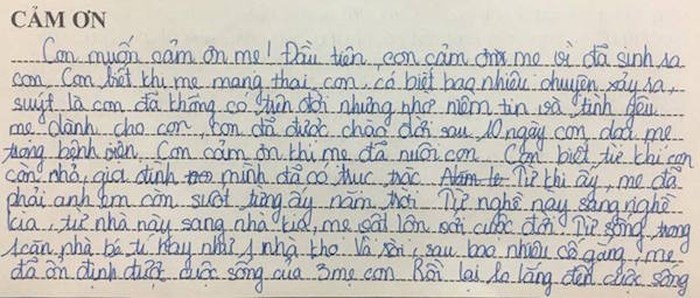 CẢM ƠN
Con muốn cảm ơn mẹ! Đầu tiên, con cảm ơn mẹ vì đã sinh ra
con. Con biết khi mẹ mang thai con, có biết bao nhiêu chuyện xảy ra,
suýt là con đã không có trên đời nhưng nhờ niềm tin và tình yêu
mẹ dành cho con, con đã được chào đời sau 10 ngày con đau mẹ
trong bệnh viện. Con cảm ơn khi mẹ đã nuôi con. Con biết từ khi con
còn nhỏ, gia đình mình đã có trục trặc. Từ khi ấy, mẹ đã
phải anh em con suốt từng ấy năm trời. Từ nghề này sang nghề
kia, từ nhà này sang nhà kia, mẹ vật lộn với cuộc đời. Từ sống trong
1 căn nhà bé tí hay như 1 nhà kho Và rồi, sau bao nhiêu cố gắng, mẹ
đã ổn định được cuộc sống của 3 mẹ con. Rồi lại lo lắng đến cuộc sống